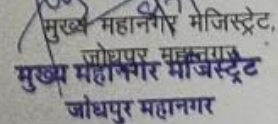 मुख्य महानगर मजिस्ट्रेट,
जोधपुर महानगर
मुख्य महानगर मजिस्ट्रेट
जोधपुर महानगर